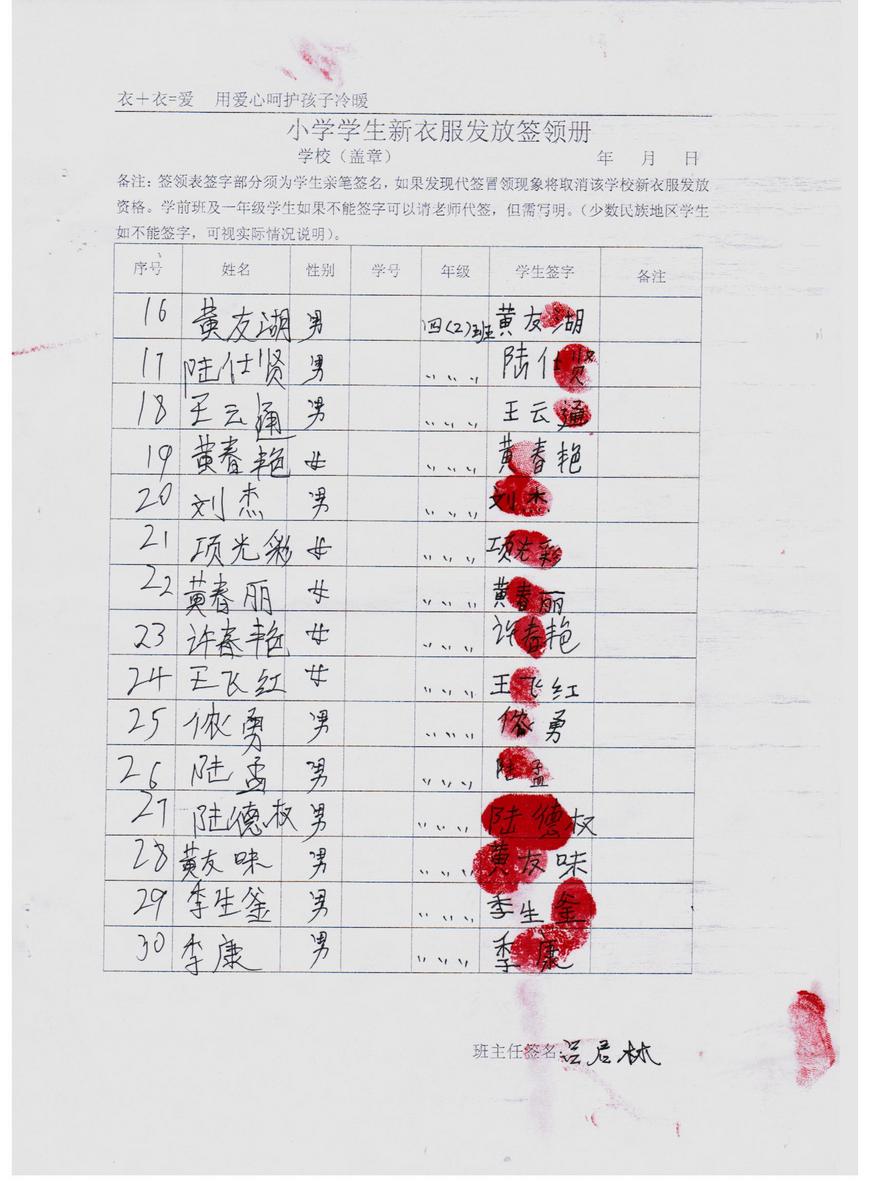 衣＋衣=爱 用爱心呵护孩子冷暖
小学学生新衣服发放签领册
学校（盖章） 年 月 日
备注：签领表签字部分须为学生亲笔签名，如果发现代签冒领现象将取消该学校新衣服发放
资格。学前班及一年级学生如果不能签字可以请老师代签，但需写明。（少数民族地区学生
如不能签字，可视实际情况说明）。
序号 姓名 性别 学号 年级 学生签字 备注
16 黄友湖 男 四（2）班 黄友湖
17 陆仕贤 男 、、、、 陆仕贤
18 王云通 男 、、、、 王云通
19 黄春艳 女 、、、、 黄春艳
20 刘杰 男 、、、、 刘杰
21 项光彩 女 、、、、 项光彩
22 黄春丽 女 、、、、 黄春丽
23 许春艳 女 、、、、 许春艳
24 王飞红 女 、、、、 王飞红
25 侬勇 男 、、、、 侬勇
26 陆孟 男 、、、、 陆孟
27 陆德权 男 、、、、 陆德权
28 黄友味 男 、、、、 黄友味
29 李生釜 男 、、、、 李生釜
30 李康 男 、、、、 李康
班主任签名：吕君林